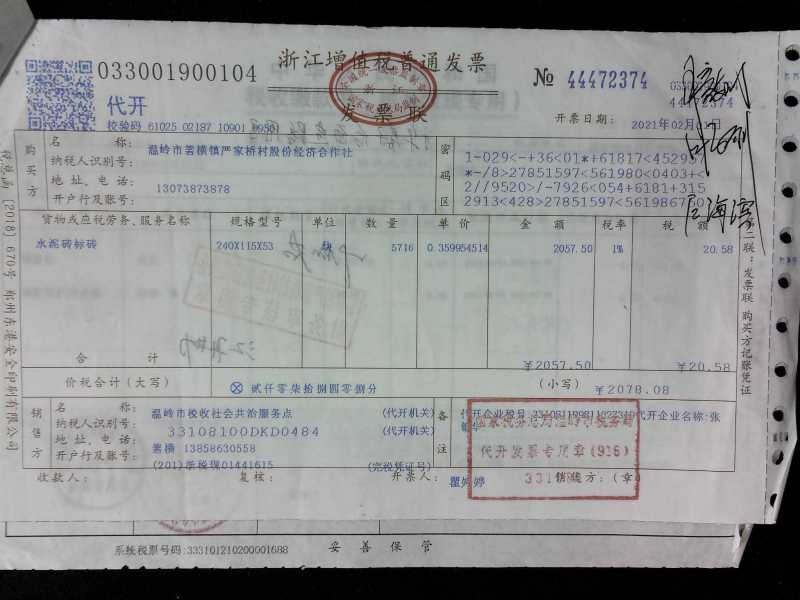 浙江增值税普通发票
033001900104
№ 44472374
代开
发票联
44472374
校验码 61025 02187 10901 09501
开票日期: 2021年02月01日
购买方
名称: 温岭市箬横镇严家桥村股份经济合作社
纳税人识别号:
地址、电话: 13073873878
开户行及账号:
密码区
1-029<-+36<01*+61817<45295
*-/8>27851597<561980<0403+<
2//9520/>-7926<054+6181+315
2913<428>27851597<5619867
货物或应税劳务、服务名称 规格型号 单位 数量 单价 金额 税率 税额
水泥砖标砖 240X115X53 块 5716 0.359954514 2057.50 1% 20.58
合计 ¥2057.50 ¥20.58
价税合计（大写） ⊗ 贰仟零柒拾捌圆零捌分 （小写） ¥2078.08
销售方
名称: 温岭市税收社会共治服务点 (代开机关)
纳税人识别号: 33108100DKD0484 (代开机关)
地址、电话: 箬横 13858630558
开户行及账号: (201)浙税现01441615 (完税凭证号)
备注
代开企业名称:张
代开发票专用章(916)
收款人: 复核: 开票人: 瞿婷婷 销售方:(章)
税总函〔2018〕670号
第二联:发票联 购买方记账凭证
系统税票号码:333101210200001688 妥善保管